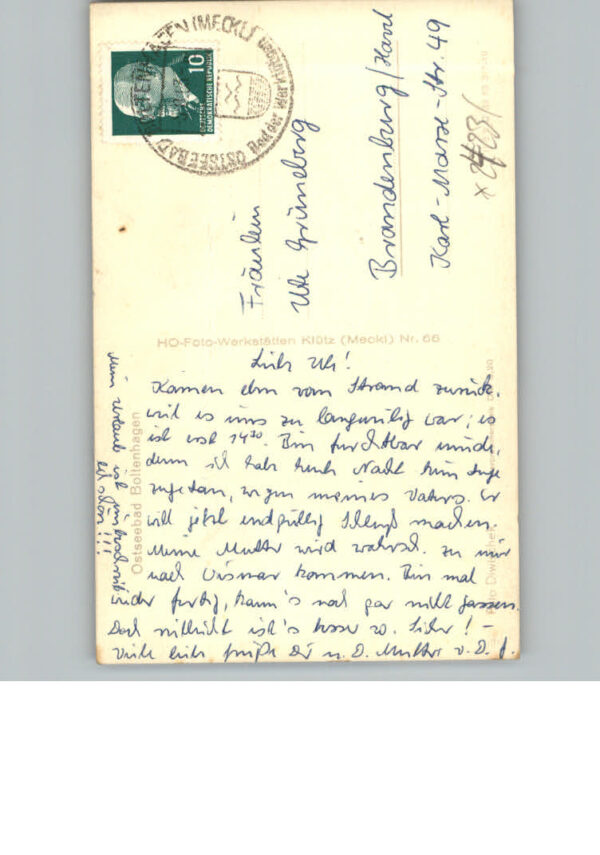 OSTSEEBAD BOLTENHAGEN (MECKL)
Bad der Werktätigen
10
DEUTSCHE
DEMOKRATISCHE REPUBLIK
Fräulein
Ute Grüneberg
Brandenburg/Havel
Karl-Marx-Str. 49
HO-Foto-Werkstätten Klütz (Meckl) Nr. 66
Ostseebad Boltenhagen
Liebe Ute!
Kamen eben vom Strand zurück,
weil es uns zu langweilig war; es
ist erst 14³⁰. Bin furchtbar müde,
denn ich habe heute Nacht kein Auge
zugetan, wegen meines Vaters. Er
will jetzt endgültig Schluß machen.
Meine Mutter wird wahrsch. zu mir
nach Wismar kommen. Bin mal
wieder fertig, kann's noch gar nicht fassen.
Doch vielleicht ist's besser so. Sicher! –
Viele liebe Grüße Dir u. D. Mutter v. D.
Mein Urlaub ist
schön!!!